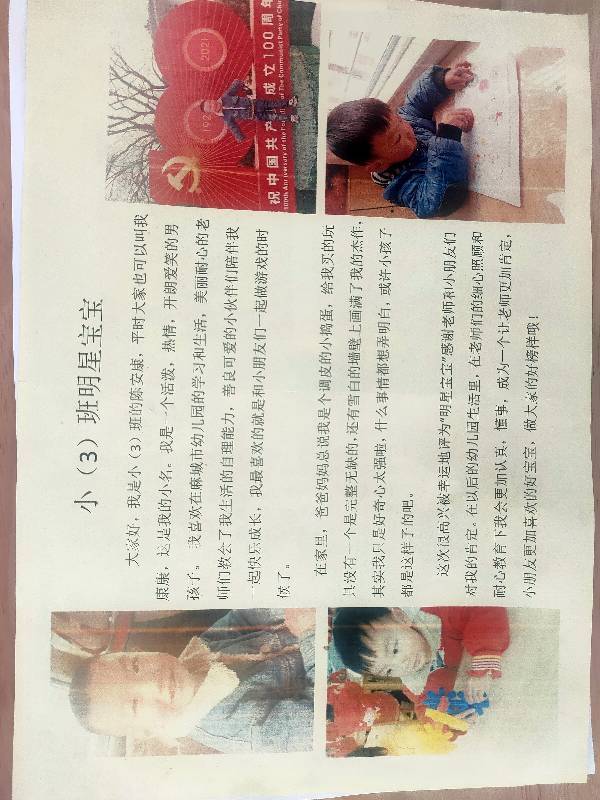 小（3）班明星宝宝
大家好，我是小（3）班的陈安康，平时大家也可以叫我
康康，这是我的小名。我是一个活泼，热情，开朗爱笑的男
孩子。我喜欢在麻城市幼儿园的学习和生活，美丽耐心的老
师们教会了我生活的自理能力，善良可爱的小伙伴们陪伴我
一起快乐成长，我最喜欢的就是和小朋友们一起做游戏的时
候了。
在家里，爸爸妈妈总说我是个调皮的小捣蛋，给我买的玩
具没有一个是完整无缺的，还有雪白的墙壁上画满了我的杰作，
其实我只是好奇心太强啦，什么事情都想弄明白，或许小孩子
都是这样子的吧。
这次很高兴被幸运地评为“明星宝宝”感谢老师和小朋友们
对我的肯定。在以后的幼儿园生活里，在老师们的细心照顾和
耐心教育下我会更加认真，懂事，成为一个让老师更加肯定，
小朋友更加喜欢的好宝宝，做大家的好榜样哦！
2021
192
祝中国共产 成立100周年
100th Anniversary of the Foundi of The Communist Party of Chin